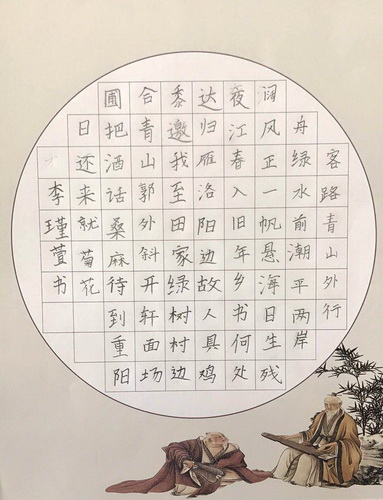 客路青山外行
舟绿水前潮平两岸
阔风正一帆悬海日生残
夜江春入旧年乡书何处
达归雁洛阳边故人具鸡
黍邀我至田家绿树村边
合青山郭外斜开轩面场
圃把酒话桑麻待到重阳
日还来就菊花
李瑾萱书